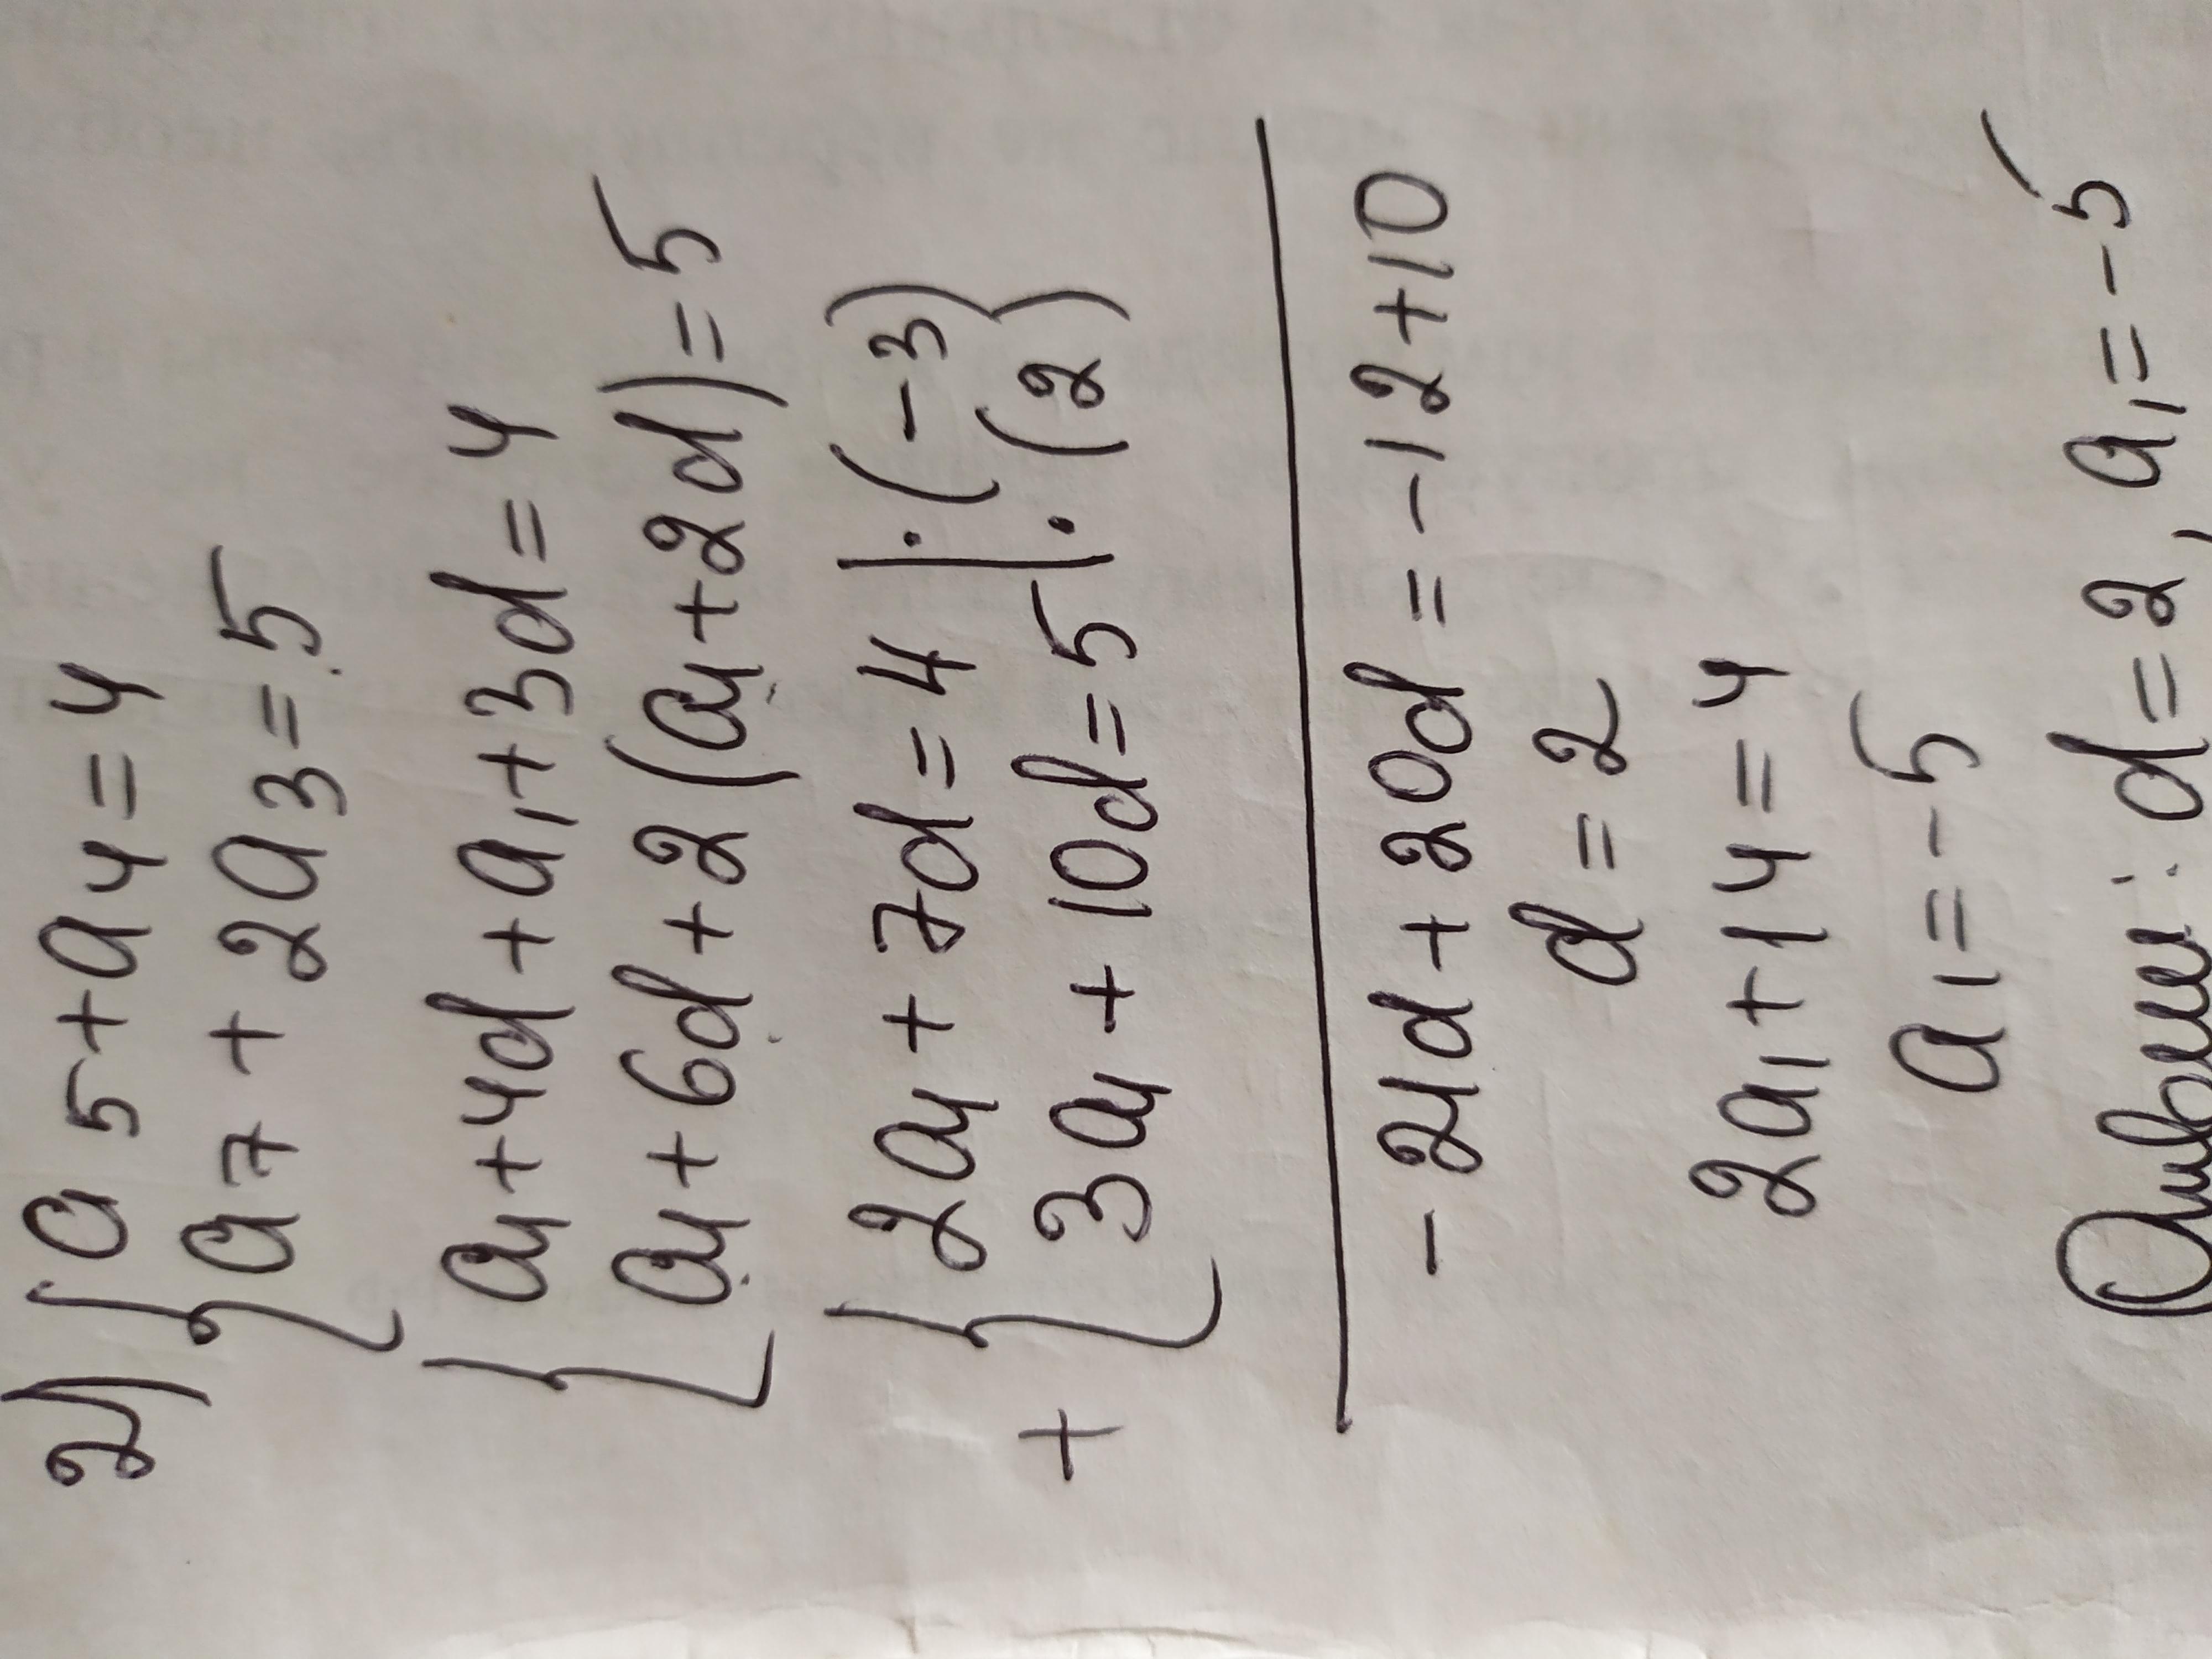 2) { a5 + a4 = 4
a7 + 2a3 = 5
{ a1 + 4d + a1 + 3d = 4
a1 + 6d + 2(a1 + 2d) = 5
{ 2a1 + 7d = 4 | · (-3)
+ 3a1 + 10d = 5 | · (2)
- 21d + 20d = -12 + 10
d = 2
2a1 + 14 = 4
a1 = -5
Ответ: d = 2, a1 = -5